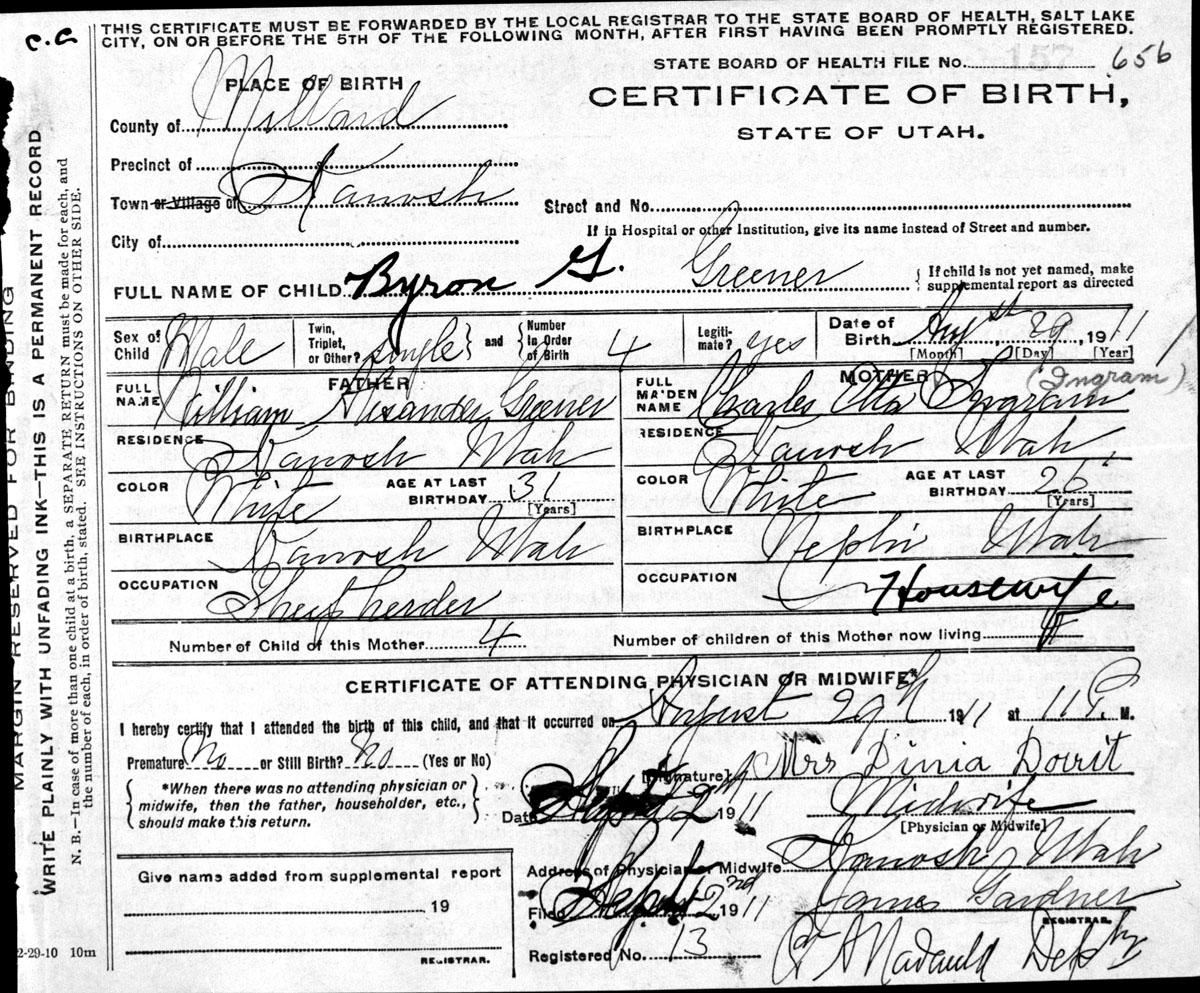 c.c
THIS CERTIFICATE MUST BE FORWARDED BY THE LOCAL REGISTRAR TO THE STATE BOARD OF HEALTH, SALT LAKE
CITY, ON OR BEFORE THE 5TH OF THE FOLLOWING MONTH, AFTER FIRST HAVING BEEN PROMPTLY REGISTERED.
STATE BOARD OF HEALTH FILE No. 157 656
PLACE OF BIRTH
CERTIFICATE OF BIRTH,
STATE OF UTAH.
County of Millard
Precinct of
Town or Village of Kanosh
Street and No.
If in Hospital or other Institution, give its name instead of Street and number.
City of
FULL NAME OF CHILD Byron G. Greener
{ If child is not yet named, make
supplemental report as directed
Sex of Child Male
Twin, Triplet, or Other? single } and { Number in Order of Birth 4
Legiti-mate? yes
Date of Birth Aug st 29, 1911
[Month] [Day] [Year]
FATHER
FULL NAME William Alexander Greener
RESIDENCE Kanosh Utah
COLOR White AGE AT LAST BIRTHDAY 31 [Years]
BIRTHPLACE Kanosh Utah
OCCUPATION Sheepherder
MOTHER
FULL MAIDEN NAME Charles Etta Ingram (Ingram)
RESIDENCE Kanosh Utah
COLOR White AGE AT LAST BIRTHDAY 26 [Years]
BIRTHPLACE Nephi Utah
OCCUPATION Housewife
Number of Child of this Mother 4 Number of children of this Mother now living 4
CERTIFICATE OF ATTENDING PHYSICIAN OR MIDWIFE*
I hereby certify that I attended the birth of this child, and that it occurred on August 29th 1911 at 11 P. M.
Premature No or Still Birth? No (Yes or No)
[Signature] Mrs Dinia Dorrit
{ *When there was no attending physician or
midwife, then the father, householder, etc.,
should make this return. }
Date Sept 2nd 1911
Midwife
[Physician or Midwife]
Address of Physician or Midwife Kanosh, Utah
Filed Sept 2nd 1911 James Gardner
REGISTRAR.
Registered No. 13
Deputy
Give name added from supplemental report
19
REGISTRAR.
2-29-10 10m
MARGIN RESERVED FOR BINDING
WRITE PLAINLY WITH UNFADING INK—THIS IS A PERMANENT RECORD
N. B.—In case of more than one child at a birth, a SEPARATE RETURN must be made for each, and
the number of each, in order of birth, stated. SEE INSTRUCTIONS ON OTHER SIDE.